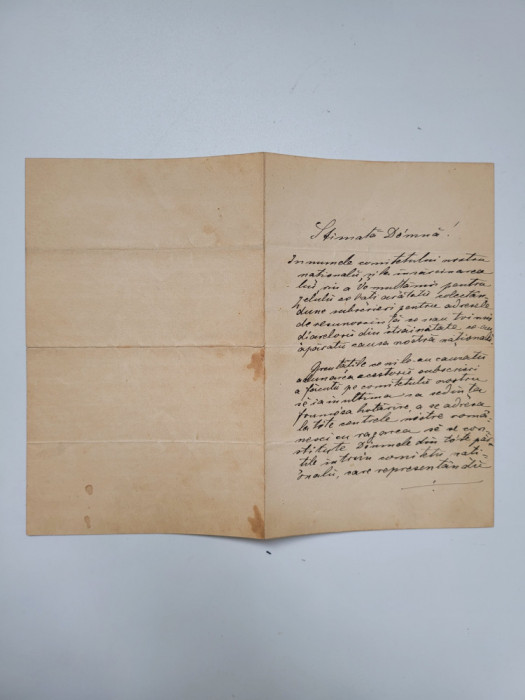 Stimată Dómnă!
În numele comitetului nostru
național și la însărcinarea
lui viu a Ve mulțămi pentru
zelulu ce l'ați arătatu colectân-
du-ne subscrieri pentru adresele
de recunoscință ce s'au trimis
diarelorŭ din străinătate ce au
apăratŭ causa nostră națională
Greutățile ce ni le-au causatŭ
adunarea acestorŭ subscrieri
a făcutŭ pe comitetulŭ nostru
să ia în ultima sa ședință
hotărîre, a se adresa
la tóte centrele nóstre româ-
nesci cu rugarea să se con-
stitue Dómnele din tóte păr-
țile într'un comitetŭ nați-
onalŭ, care representândŭ